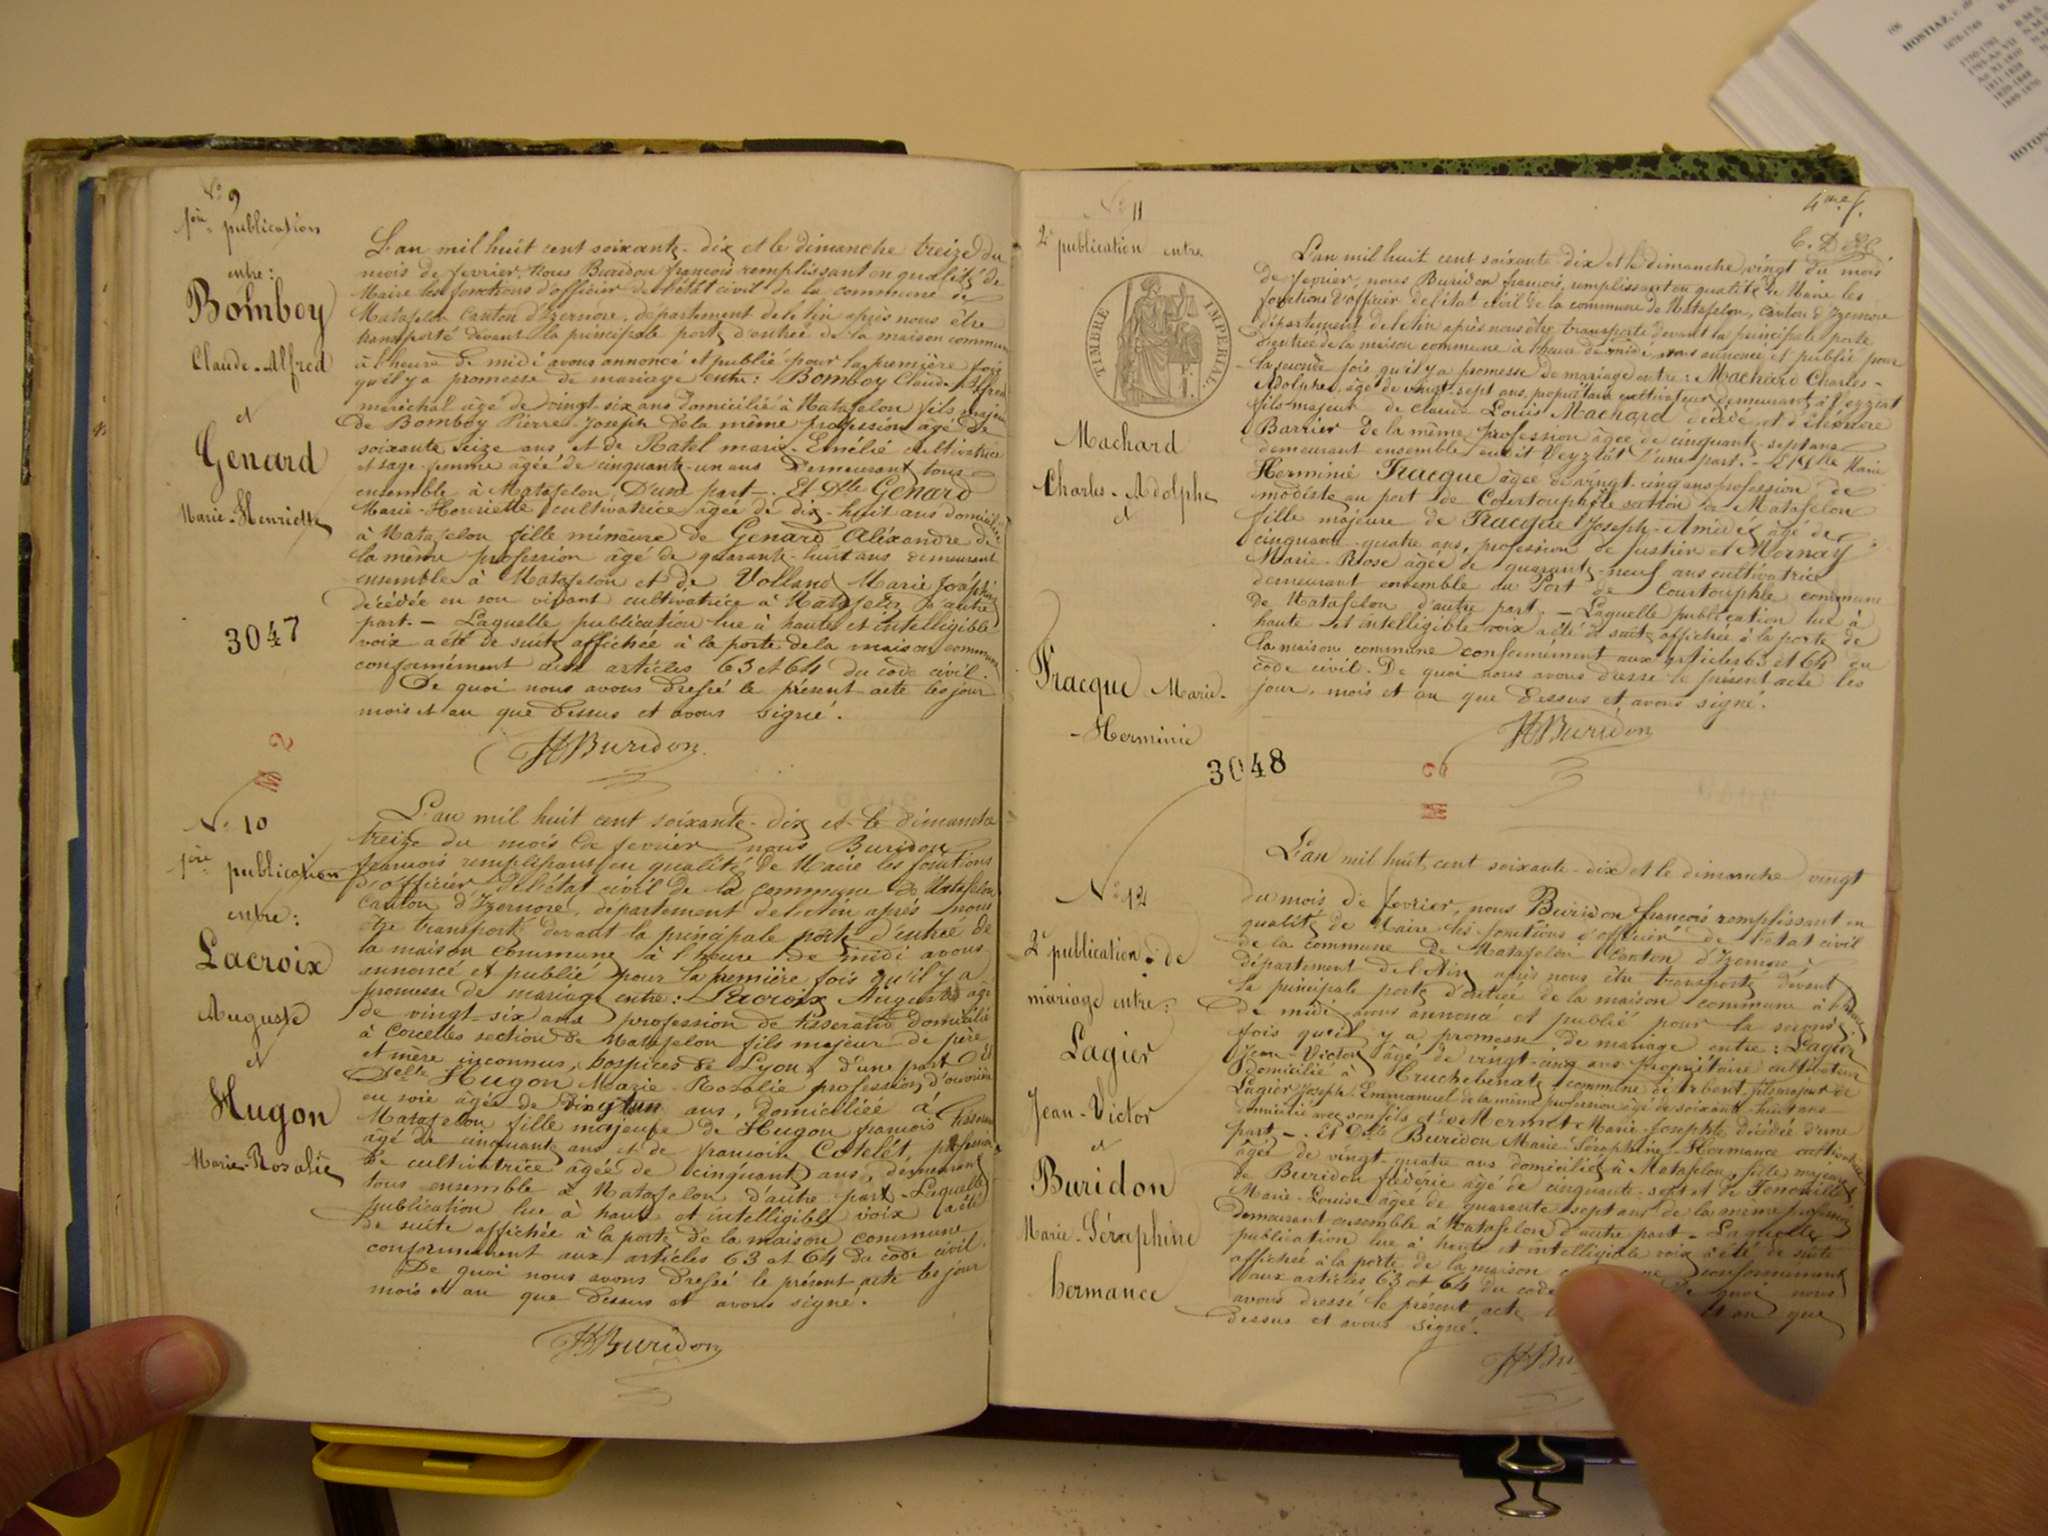 N° 9
1ère publication
entre :
Bomboy
Claude-Alfred
et
Genard
Marie-Henriette
3047
L'an mil huit cent soixante-dix et le dimanche treize du
mois de fevrier, nous Buridon françois remplissant en qualité de
Maire les fonctions d'officier de l'état civil de la commune de
Matafelon Canton d'Izernore, département de l'Ain après nous être
transporté devant la principale porte d'entrée de la maison commune
à l'heure de midi avons annoncé et publié pour la première fois
qu'il y a promesse de mariage entre : Bomboy Claude Alfred
maréchal âgé de vingt-six ans domicilié à Matafelon fils majeur
de Bomboy Pierre-Joseph de la même profession âgé de
soixante seize ans et de Ratel marie-Emélié cultivatrice
et sage-femme agée de cinquante-un ans demeurant tous
ensemble à Matafelon, D'une part. - Et Dlle Genard
Marie-Henriette cultivatrice âgée de dix-huit ans domiciliée
à Matafelon fille mineure de Genard Aléxandre de
la même profession âgé de quarante-huit ans demeurant
ensemble à Matafelon et de Volland Marie Joséphine
décédée en son vivant cultivatrice à Matafelon d'autre
part. - Laquelle publication lue à haute et intelligible
voix a été de suite affichée à la porte de la maison commune
conformément aux articles 63 et 64 du code civil.
De quoi nous avons dressé le présent acte les jour
mois et an que dessus et avons signé.
Buridon
M 2
N° 10
1ère publication
entre :
Lacroix
Auguste
et
Hugon
Marie-Rosalie
L'an mil huit cent soixante-dix et le dimanche
treize du mois de fevrier nous Buridon
francois remplissant en qualité de Maire les fonctions
d'officier de l'état civil de la commune de Matafelon
Canton d'Izernore, département de l'Ain après nous
être transporté devant la principale porte d'entrée de
la maison commune à l'heure de midi avons
annoncé et publié pour la première fois qu'il y a
promesse de mariage entre : Lacroix Auguste âgé
de vingt-six ans profession de tisserand domicilié
à Corcelles section de Matafelon fils majeur de père
et mère inconnus, hospices de Lyon, d'une part Et
Delle Hugon Marie-Rosalie profession d'ouvrière
en soie âgée de vingt un ans, domiciliée à
Matafelon fille majeure de Hugon francois tisserand
âgé de cinquante ans et de françoise Cotelét,
de cultivatrice âgée de cinquant ans, demeurant
tous ensemble à Matafelon d'autre part - Laquelle
publication lue à haute et intelligible voix a été
de suite affichée à la porte de la maison commune
conformement aux articles 63 et 64 du code civil.
De quoi nous avons dressé le présent acte les jour
mois et an que dessus et avons signé.
Buridon
4me f.
N° 11
2e publication entre
TIMBRE IMPERIAL
Machard
Charles-Adolphe
et
Fracque Marie-
-Herminie
3048
L'an mil huit cent soixante dix et le dimanche vingt du mois
de fevrier, nous Buridon francois, remplissant en qualité de Maire les
fonctions d'officier de l'état civil de la commune de Matafelon, canton d'Izernore
département de l'Ain après nous être transporté devant la principale porte
d'entrée de la maison commune à l'heure de midi, avons annoncé et publié pour
la seconde fois qu'il y a promesse de mariage entre : Machard Charles-
Adolphe, âgé de vingt-sept ans, propriétaire cultivateur demeurant à Veyziat
fils majeur de Claude Louis Machard décédé et d'éléonore
Barrier de la même profession âgée de cinquante-sept ans
demeurant ensemble au dit Veyziat d'une part. - Et Dlle Marie
Herminie Fracque âgée de vingt-cinq ans profession de
modiste au port de Courtouphle section de Matafelon
fille majeure de Fracque Joseph-Amédé âgé de
cinquante-quatre ans, profession de justier et Mornay
Marie-Rose âgée de quarante-neuf ans cultivatrice
demeurant ensemble du Port de Courtouphle commune
de Matafelon d'autre part. - Laquelle publication lue à
haute et intelligible voix a été de suite affichée à la porte de
la maison commune conformément aux articles 63 et 64 du
code civil. De quoi nous avons dressé le présent acte les
jour, mois et an que dessus et avons signé.
Buridon
M 2
N° 12
2e publication de
mariage entre :
Lagier
Jean-Victor
et
Buridon
Marie-Séraphine
hermance
L'an mil huit cent soixante-dix et le dimanche vingt
du mois de fevrier, nous Buridon francois remplissant en
qualité de Maire les fonctions d'officier de l'état civil
de la commune de Matafelon Canton d'Izernore
département de l'Ain après nous être transporté devant
la principale porte d'entrée de la maison commune à l'heure
de midi avons annoncé et publié pour la seconde
fois qu'il y a promesse de mariage entre : Lagier
Jean-Victor âgé de vingt-cinq ans propriétaire cultivateur
domicilié à commune d'Arbent fils majeur de
Lagier Joseph Emmanuel de la même profession âgé de soixante-huit ans
domicilié avec son fils et de Mermet Marie-Josephte décédée d'une
part -. Et Delle Buridon Marie-Séraphine-Hermance
âgée de vingt-quatre ans domiciliée à Matafelon, fille majeure
de Buridon fréderic âgé de cinquante-sept et de
Marie-Louise âgée de quarante sept ans de la meme profession
demeurant ensemble à Matafelon d'autre part - Laquelle
publication lue à haute et intelligible voix a été de suite
affichée à la porte de la maison conformément
aux articles 63 et 64 du code De quoi nous
avons dressé le présent acte et an que
dessus et avons signé.
Bu
HOSTIAZ